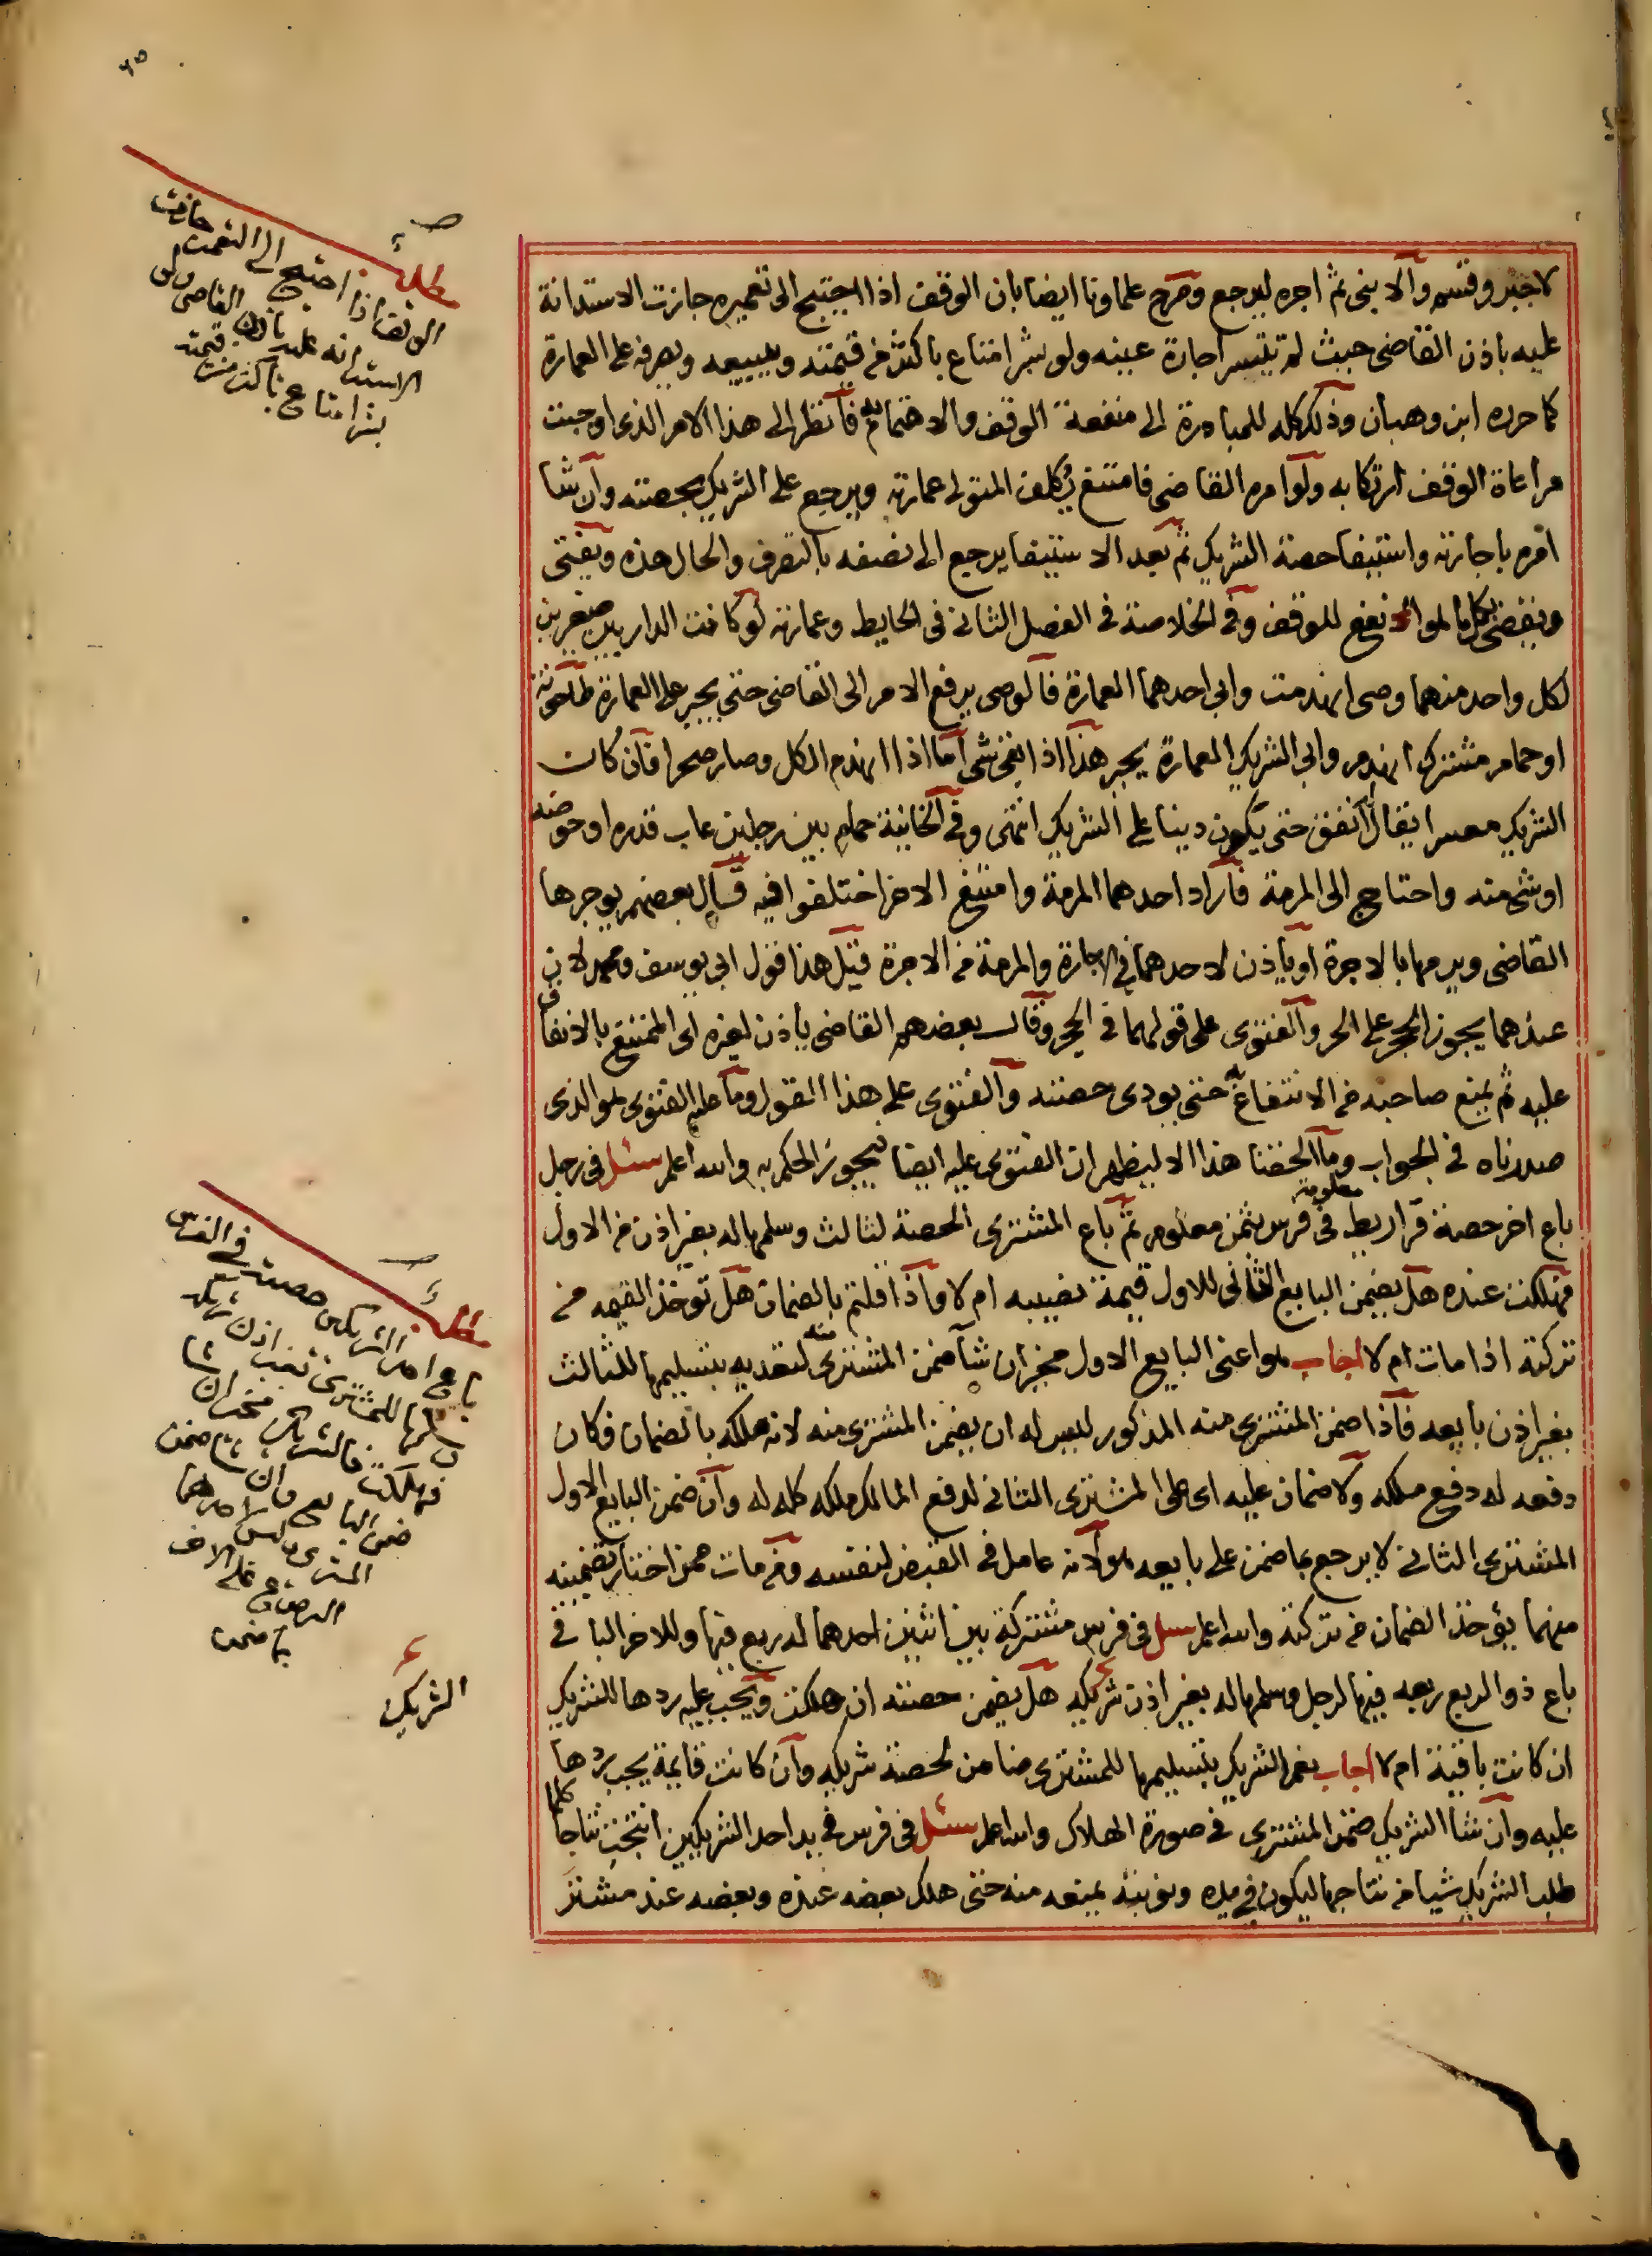 لا جبر وقسم والا بنى ثم اجره ليرجع وصرح علماونا ايضا بان الوقف اذا احتيج الى تعميره جازت الاستدانة
عليه باذن القاضى حيث لم تتيسر اجارة عينه ولو بشرا متاع باكثر من قيمته ويبيعه ويصرفه على العمارة
كما حرره ابن وهبان وذلك كله للمبادرة الى منفعة الوقف والاهتمام به فانظر الى هذا الامر الذى اوجبت
مراعاة الوقف ارتكابه ولو امره القاضى فامتنع يكلف المتولى عمارته ويرجع على الشريك بحصته وان شا
امره باجارته واستيفا حصة الشريك ثم بعد الاستيفا يرجع الى نصفه بالتصرف والحال هذه ويفتى
ويقضى بكل ما هو انفع للوقف وفى الخلاصة فى الفصل الثانى فى الحايط وعمارته لو كانت الدار بين صغيرين
لكل واحد منهما وصى انهدمت وابى احدهما العمارة فالوصى يرفع الامر الى القاضى حتى يجبر على العمارة طاحونة
او حمام مشترك انهدم وابى الشريك العمارة يجبر هذا اذا بقى شى اما اذا انهدم الكل وصار صحرا فان كان
الشريك معسرا يقال انفق حتى يكون دينا على الشريك انتهى وفى الخانية حمام بين رجلين عاب قدره او حوضه
او شى منه واحتاج الى المرمة فاراد احدهما المرمة وامتنع الاخر اختلفوا فيه قال بعضهم يوجرها
القاضى ويرمها بالاجرة او ياذن لاحدهما فى الاجارة والمرمة من الاجرة قيل هذا قول ابى يوسف ومحمد لان
عندهما يجوز الحجر على الحر والفتوى على قولهما فى الحجر وقال بعضهم القاضى ياذن لغيره اى الممتنع بالانفاق
عليه ثم يمنع صاحبه من الانتفاع به حتى يودى حصته والفتوى على هذا القول وما عليه الفتوى هو الذى
صدرناه فى الجواب وما الحقنا هذا الا ليظهر ان الفتوى عليه ايضا فيجوز الحكم به والله اعلم سئل فى رجل
باع اخر حصة قراريط معلومة فى فرس بثمن معلوم ثم باع المشترى الحصة لثالث وسلمها له بغير اذن من الاول
فهلكت عنده هل يضمن البايع الثانى للاول قيمة نصيبه ام لا واذا قلتم بالضمان هل توخذ القيمه من
تركته اذا مات ام لا اجاب هو اعنى البايع الاول مخير ان شا ضمن المشترى منه لتعديه بتسليمها للثالث
بغير اذن بايعه فاذا ضمن المشترى منه المذكور ليس له ان يضمن المشترى منه لانه ملكه بالضمان فكان
دفعه له دفع ملكه ولا ضمان عليه اى على المشترى الثانى لدفع المالك ملكه كله له وان ضمن البايع الاول
المشترى الثانى لا يرجع بما ضمن على بايعه هو لانه عامل فى القبض لنفسه ومن مات ممن اختار تضمينه
منهما يؤخذ الضمان من تركته والله اعلم سئل فى فرس مشتركة بين اثنين احدهما له ربع فيها وللاخر الباقى
باع ذو الربع ربعه فيها لرجل وسلمها له بغير اذن شريكه هل يضمن حصته ان هلكت ويجب عليه ردها للشريك
ان كانت باقية ام لا اجاب نعم الشريك بتسليمها للمشترى ضامن لحصة شريكه وان كانت قايمة يجب ردها
عليه وان شا الشريك ضمن المشترى فى صورة الهلاك والله اعلم سئل فى فرس فى يد احد الشريكين انتجت نتاجا كلما
طلب الشريك شيا من نتاجها ليكون فى يده ونوبته يمنعه منه حتى هلك بعضه عنده وبعضه عند مشتر
مطلب
الوقف اذا احتيج الى التعمير جازت
الاستدانه عليه باذن القاضى ولو
بشرا متاع باكثر من قيمته
مطلب
باع احد الشريكين حصته فى الفرس
وسلمها للمشترى بغير اذن شريكه
فهلكت فالشريك مخير ان شا
ضمن البايع وان شا ضمن
المشترى وليس لاحدهما
الرجوع على الاخر
بما ضمن
الشريك